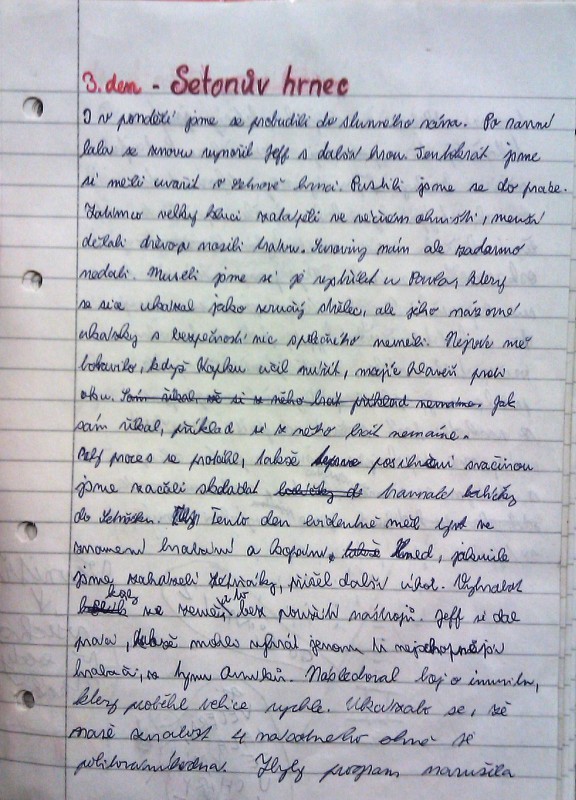 3. den - Setonův hrnec
I v pondělí jsme se probudili do slunného rána. Po ranní
se znovu vynořil Jeff s další hrou. Tentokrát jsme
si měli uvařit v Setnově hrnci. Pustili jsme se do práce.
Zatímco velký kluci zatápěli ve ohništi, menší
dělali dřevo a nosili trávu. Suroviny nám ale zadarmo
nedali. Museli jsme si je vystřílet u Pavlas který
se sice ukázal jako střelec, ale jeho názorné
ukázky s bezpečností nic společného neměli. Nejvíc mě
když Kopku učil mířit, maje hlaveň proti
oku. Sám říkal, že si z něho brát příklad nemáme. Jak
sám říkal, příklad si z něho brát nemáme.
Celý proces se protáhl, takže posilněni svačinou
jsme začali skládat
do Tento den evidentně měl být ve
znamení hrabání a kopání, takže hned, jakmile
jsme zaházeli přišel další úkol. Vyhrabat
co bez použití nástrojů. Jeff si dal
práci, takže mohli vyhrát jenom ti nejschopnější
hrabači, z týmu Následoval boj o imunitu,
který proběhl velice rychle. Ukázalo se, že
naše znalost 4 násobného ohně je
politováníhodna. Zbylý program narušila